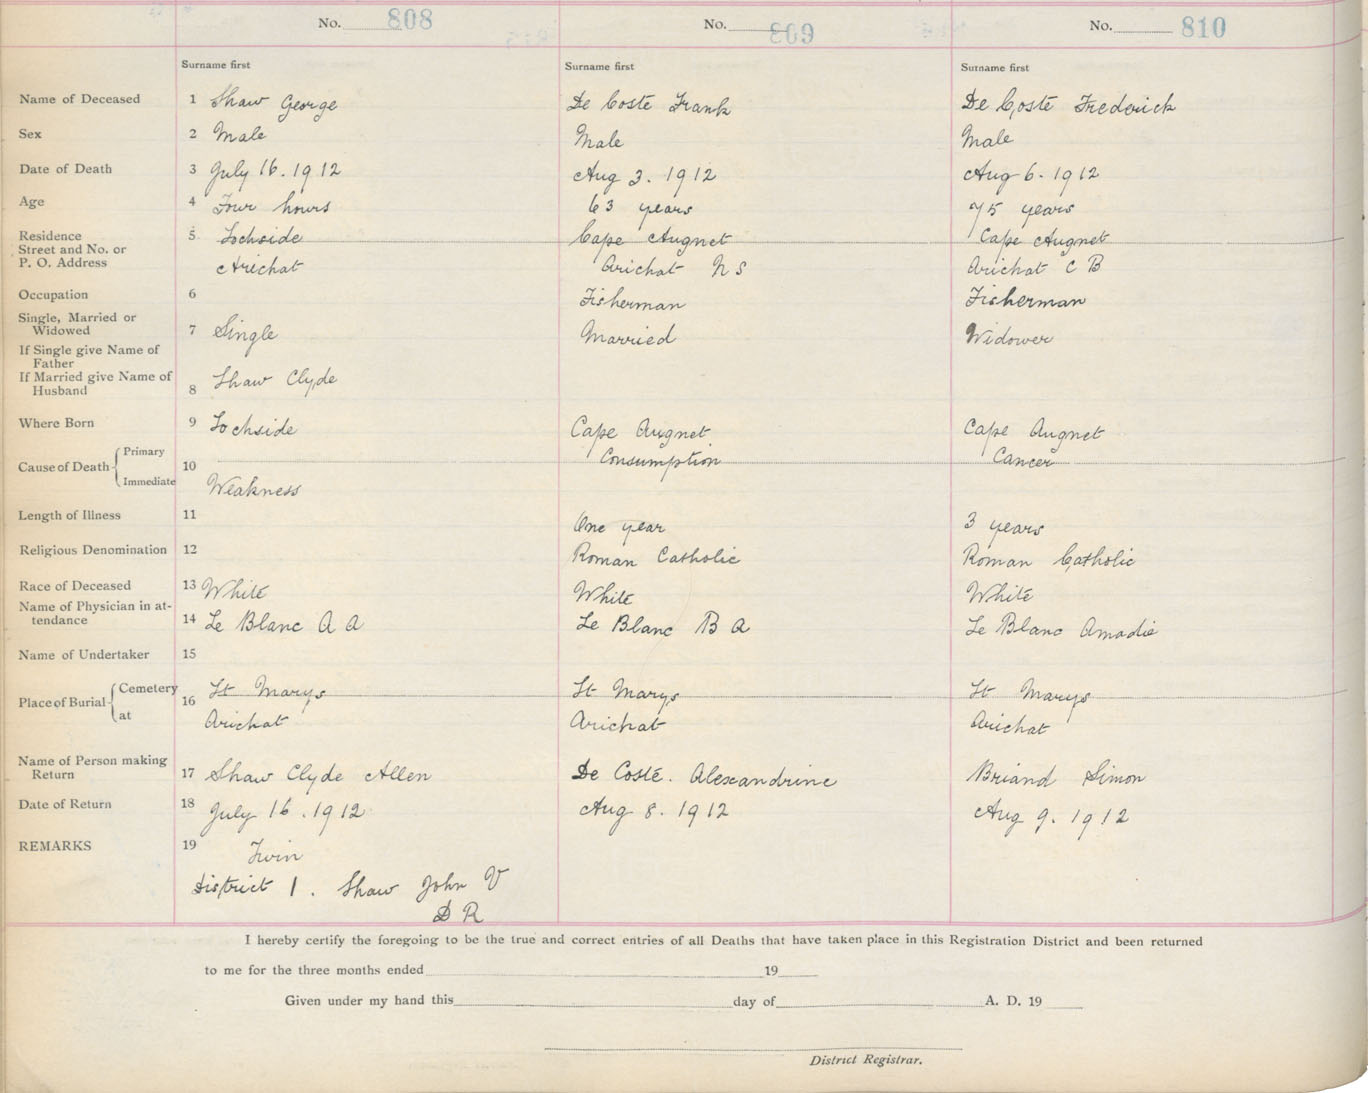 No. 808 No. 809 No. 810
Surname first Surname first Surname first
Name of Deceased 1 Shaw George De Coste Frank De Coste Frederick
Sex 2 Male Male Male
Date of Death 3 July 16. 1912 Aug 3. 1912 Aug 6. 1912
Age 4 Four hours 63 years 75 years
Residence 5 Lochside Cape Augnet Cape Augnet
Street and No. or
P. O. Address Arichat Arichat N S Arichat C B
Occupation 6 Fisherman Fisherman
Single, Married or
Widowed 7 Single Married Widower
If Single give Name of
Father
If Married give Name of
Husband 8 Shaw Clyde
Where Born 9 Lochside Cape Augnet Cape Augnet
Cause of Death Primary 10 Consumption Cancer
Immediate Weakness
Length of Illness 11 One year 3 years
Religious Denomination 12 Roman Catholic Roman Catholic
Race of Deceased 13 White White White
Name of Physician in at-
tendance 14 Le Blanc A A Le Blanc B A Le Blanc Amadie
Name of Undertaker 15
Place of Burial Cemetery 16 St Marys St Marys St Marys
at Arichat Arichat Arichat
Name of Person making
Return 17 Shaw Clyde Allen De Coste. Alexandrine Briand Simon
Date of Return 18 July 16. 1912 Aug 8. 1912 Aug 9. 1912
REMARKS 19 Twin
District 1. Shaw John V
D R
I hereby certify the foregoing to be the true and correct entries of all Deaths that have taken place in this Registration District and been returned
to me for the three months ended 19
Given under my hand this day of A. D. 19
District Registrar.